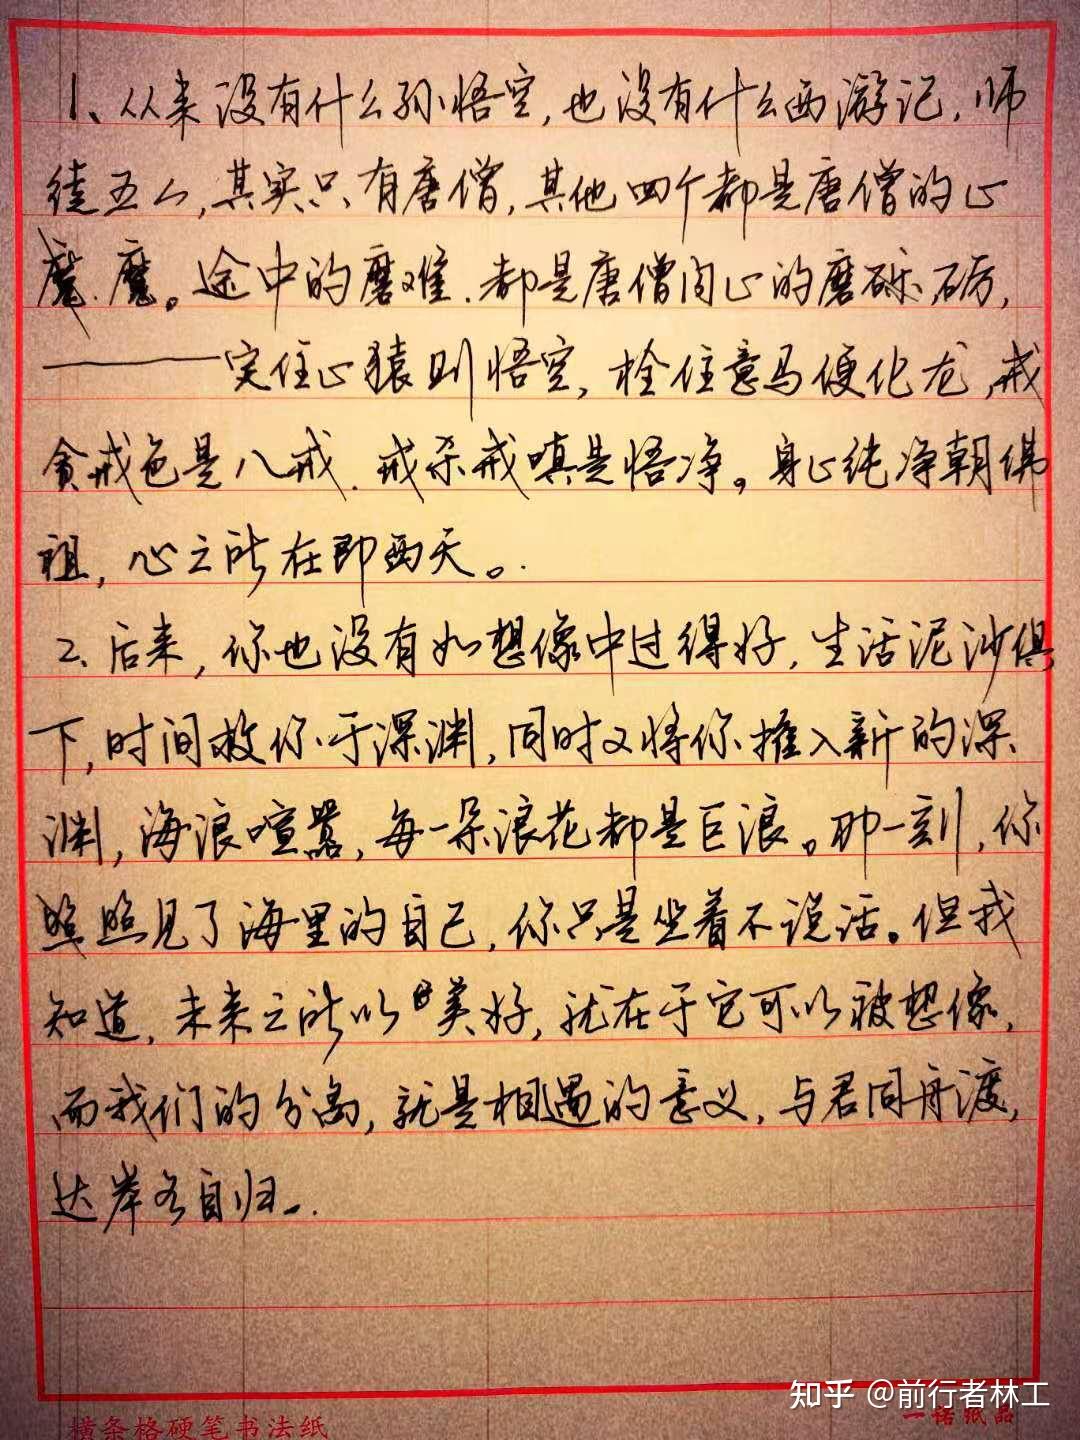 1、从来没有什么孙悟空,也没有什么西游记,师
徒五人,其实只有唐僧,其他四个都是唐僧的心
魔.魔。途中的磨难.都是唐僧内心的磨砾.砺,
————定住心猿则悟空,栓住意马便化龙,戒
贪戒色是八戒.戒杀戒嗔是悟净。身心纯净朝佛
祖,心之所在即西天。.
2、后来,你也没有如想像中过得好,生活泥沙俱
下,时间救你于深渊,同时又将你推入新的深
渊,海浪喧嚣,每一朵浪花都是巨浪。那一刻,你
照照见了海里的自己,你只是坐着不说话。但我
知道,未来之所以美好,就在于它可以被想像,
而我们的分离,就是相遇的意义,与君同舟渡,
达岸各自归。.
知乎 @前行者林工
横条格硬笔书法纸
一诺纸品